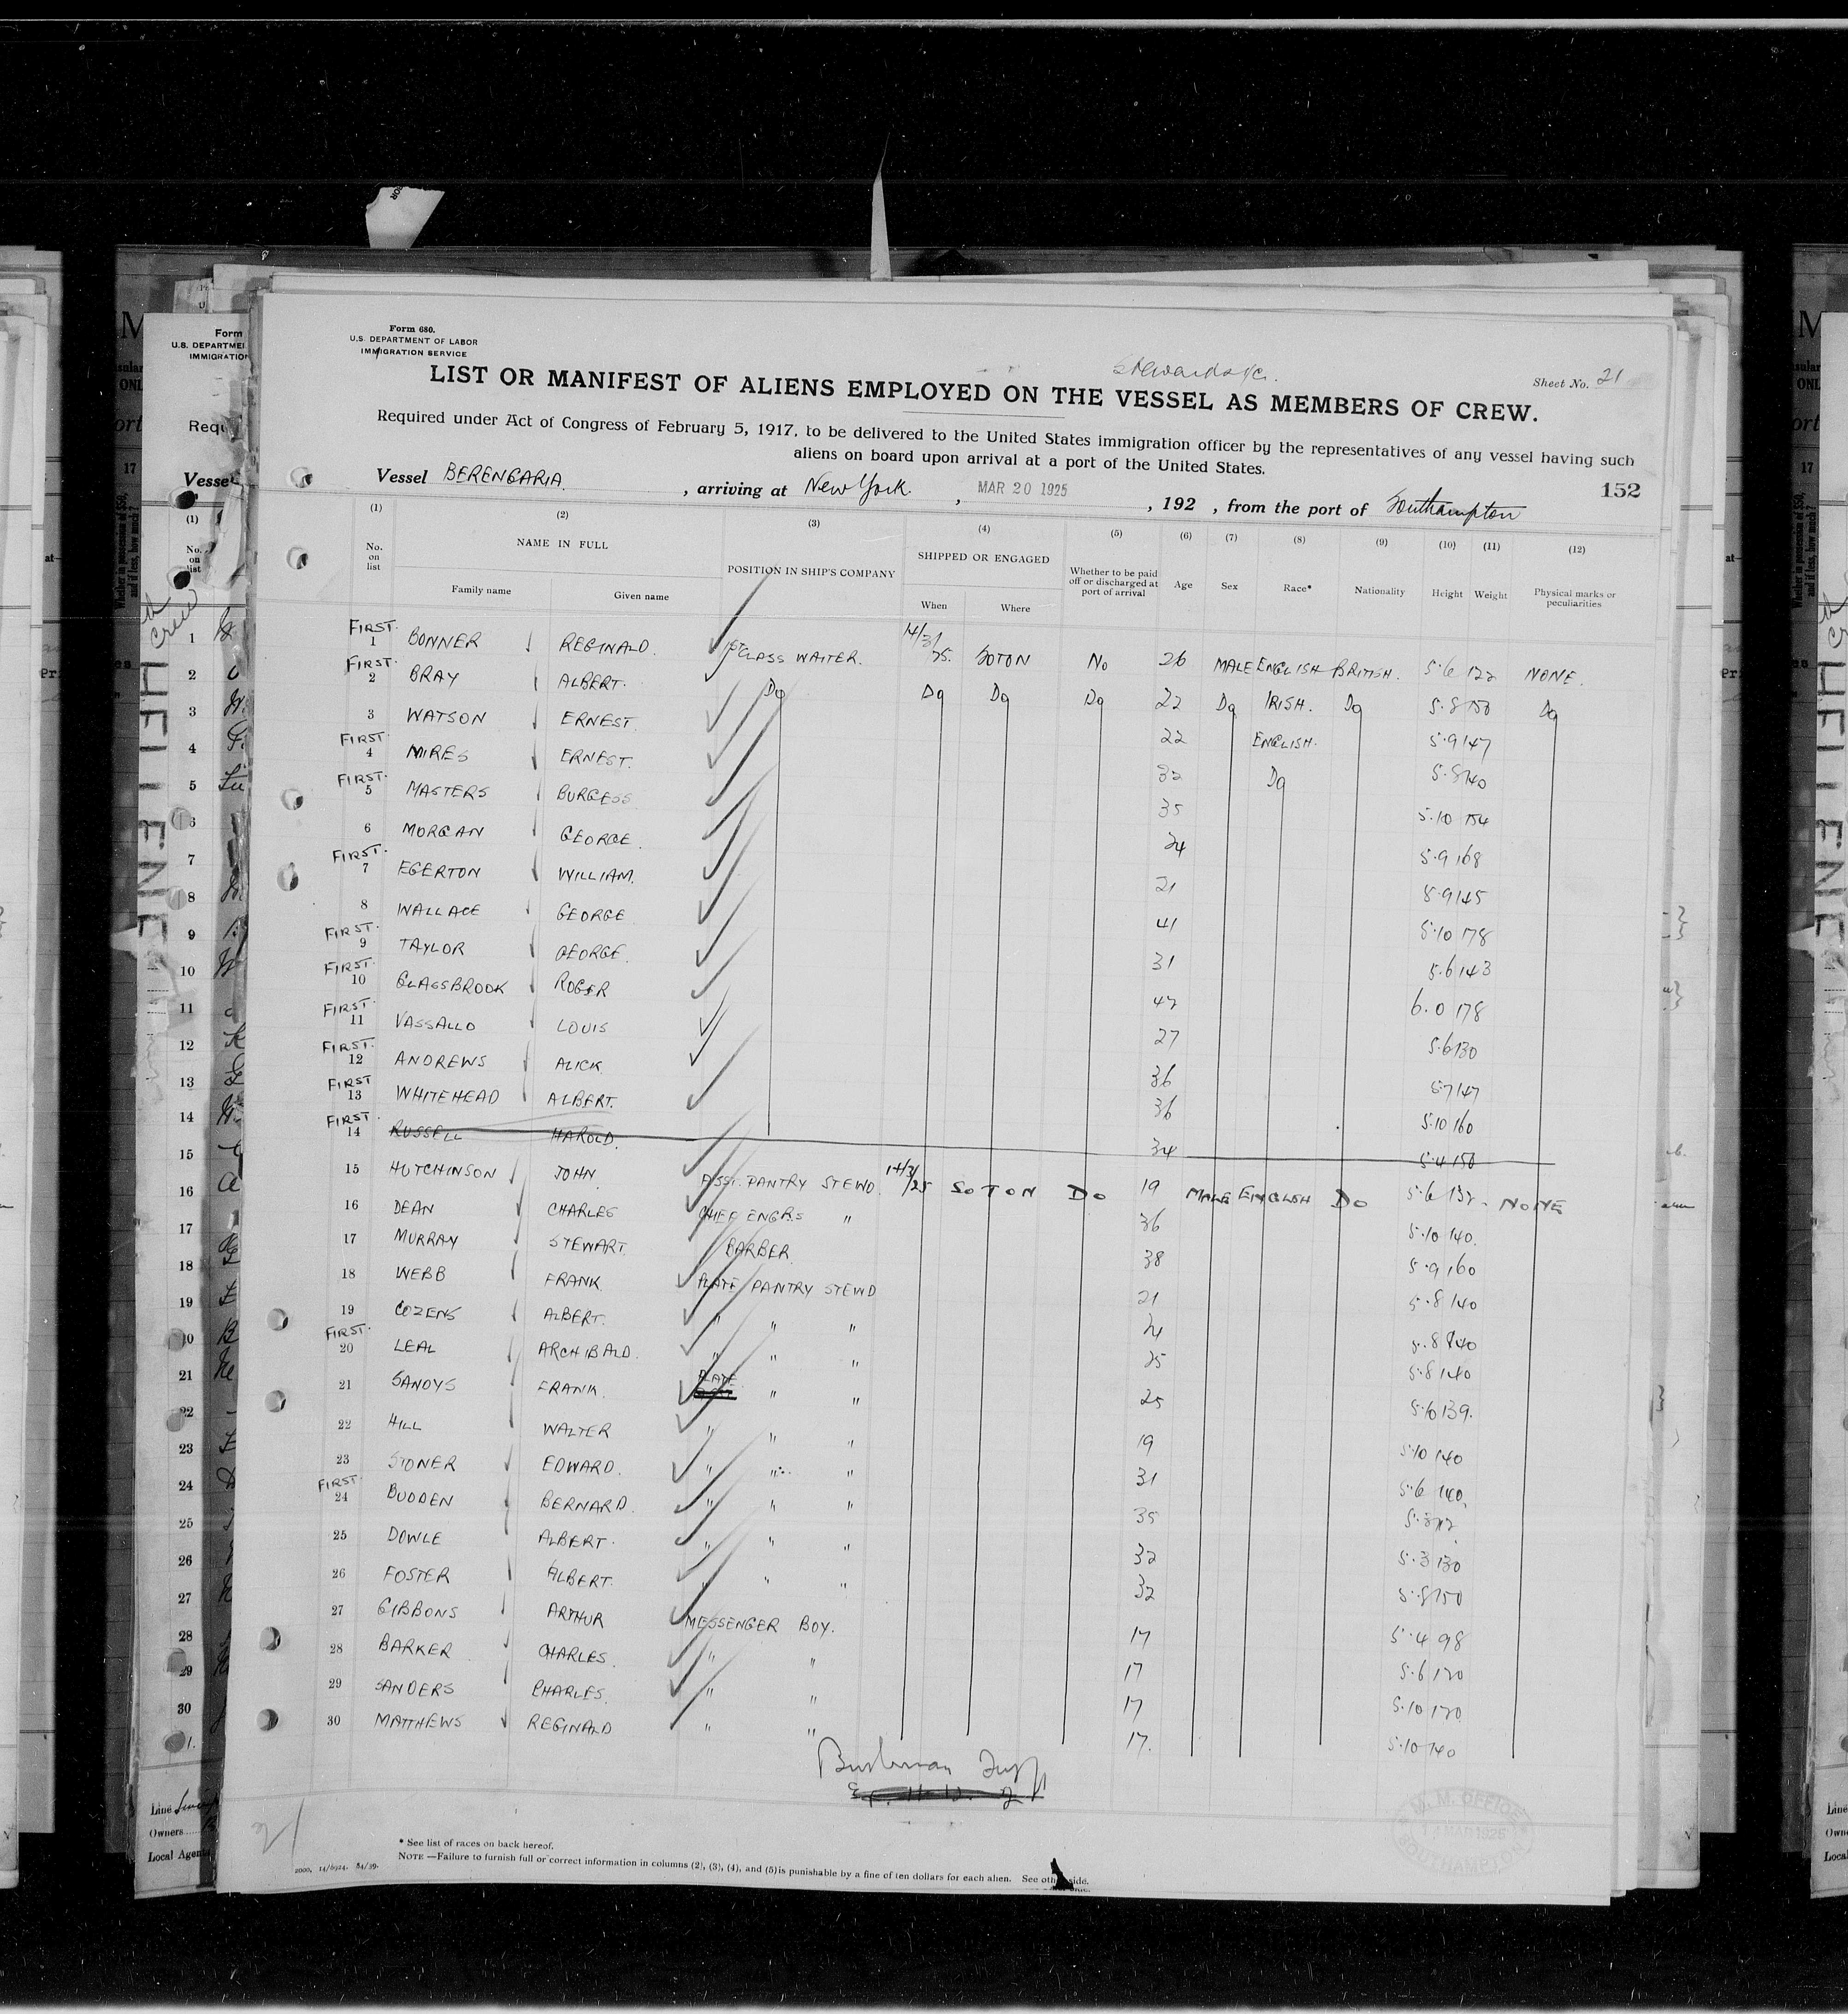 Form 680.
U.S. DEPARTMENT OF LABOR
IMMIGRATION SERVICE
Stewards &c.
Sheet No. 21
LIST OR MANIFEST OF ALIENS EMPLOYED ON THE VESSEL AS MEMBERS OF CREW.
Required under Act of Congress of February 5, 1917, to be delivered to the United States immigration officer by the representatives of any vessel having such
aliens on board upon arrival at a port of the United States.
152
Vessel BERENGARIA, arriving at New York, MAR 20 1925, 192 , from the port of Southampton
(1) (2) (3) (4) (5) (6) (7) (8) (9) (10) (11) (12)
No. on list NAME IN FULL Family name Given name POSITION IN SHIP'S COMPANY SHIPPED OR ENGAGED When Where Whether to be paid off or discharged at port of arrival Age Sex Race* Nationality Height Weight Physical marks or peculiarities
FIRST. 1 BONNER REGINALD. 1ST CLASS WAITER. 14/3/25. SOTON No 26 MALE ENGLISH BRITISH. 5.6 122 NONE.
FIRST. 2 BRAY ALBERT. Do Do Do Do 22 Do IRISH. Do 5.8 150 Do
3 WATSON ERNEST. 22 ENGLISH. 5.9 147
FIRST. 4 MIRES ERNEST. 32 Do 5.8 140
FIRST. 5 MASTERS BURGESS 35 5.10 154
6 MORGAN GEORGE. 24 5.9 168
FIRST. 7 EGERTON WILLIAM. 21 5.9 145
8 WALLACE GEORGE 41 5.10 178
FIRST. 9 TAYLOR GEORGE. 31 5.6 143
FIRST. 10 GLASSBROOK ROGER 42 6.0 178
FIRST. 11 VASSALLO LOUIS 27 5.6 130
FIRST. 12 ANDREWS ALICK. 36 5.7 147
FIRST 13 WHITEHEAD ALBERT. 36 5.10 160
FIRST. 14 RUSSELL HAROLD. 34 5.4 150
15 HUTCHINSON JOHN. ASST. PANTRY STEWD. 14/3/25 SOTON Do 19 MALE ENGLISH Do 5.6 132 NONE
16 DEAN CHARLES CHIEF ENGRS " 36 5.10 140.
17 MURRAY STEWART. BARBER. 38 5.9 160
18 WEBB FRANK. PLATE PANTRY STEWD 21 5.8 140
19 COZENS ALBERT. " " " 24 5.8 140
FIRST. 20 LEAL ARCHIBALD. " " " 25 5.8 140
21 SANDYS FRANK. PLATE " " 25 5.10 139.
22 HILL WALTER " " " 19 5.10 140
23 STONER EDWARD. " " " 31 5.6 140.
FIRST. 24 BUDDEN BERNARD. " " " 35
25 DOWLE ALBERT. " " " 32 5.3 130
26 FOSTER ALBERT. " " " 32 5.8 150
27 GIBBONS ARTHUR MESSENGER BOY. 17 5.4 98
28 BARKER CHARLES. " " 17 5.6 120
29 SANDERS CHARLES. " " 17 5.10 120
30 MATTHEWS REGINALD " " 17. 5.10 140
21
* See list of races on back hereof.
NOTE —Failure to furnish full or correct information in columns (2), (3), (4), and (5) is punishable by a fine of ten dollars for each alien. See other side.
2000, 14/6924. 84/39.
M. M. OFFICE
MAR 1925
SOUTHAMPTON
Form
U.S. DEPARTME
IMMIGRATIO
Requ
Vessel
(1)
No. on list
1
2
3
4
5
6
7
8
9
10
11
12
13
14
15
16
17
18
19
20
21
22
23
24
25
26
27
28
29
30
Line
Owners
Local Agent